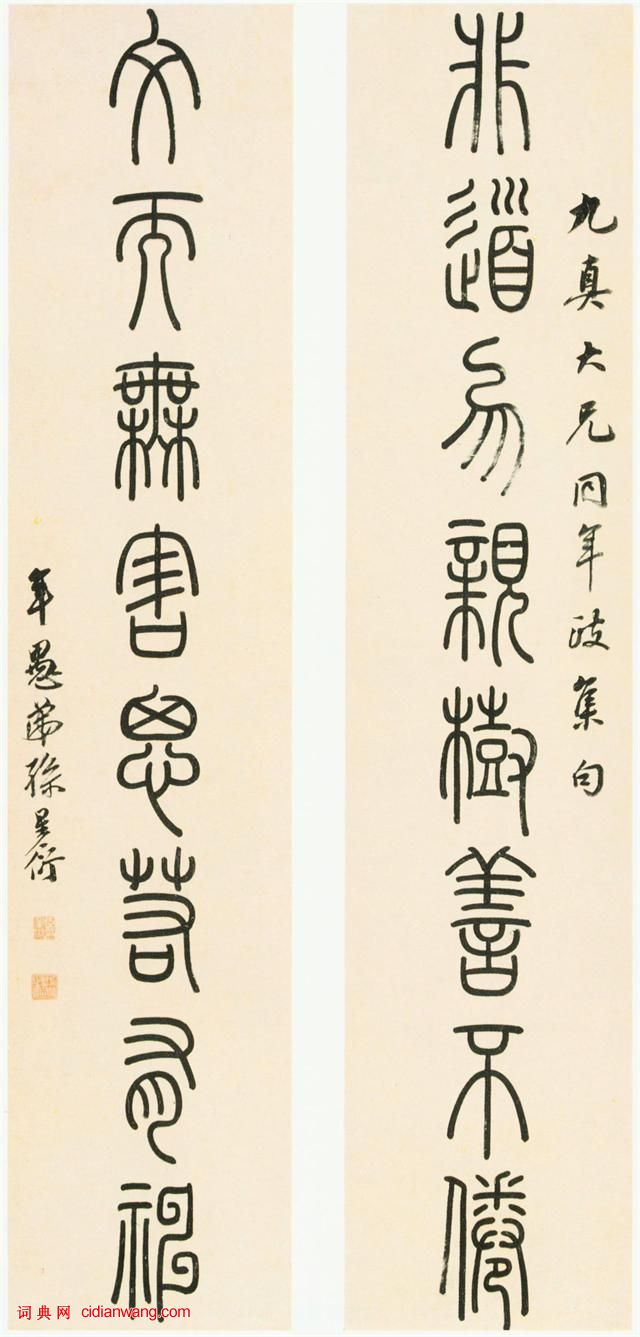 九真大兄同年政集句
非道勿親樹善不倦
文而無害思若有神
年愚弟孫星衍
词典网 cidianwang.com